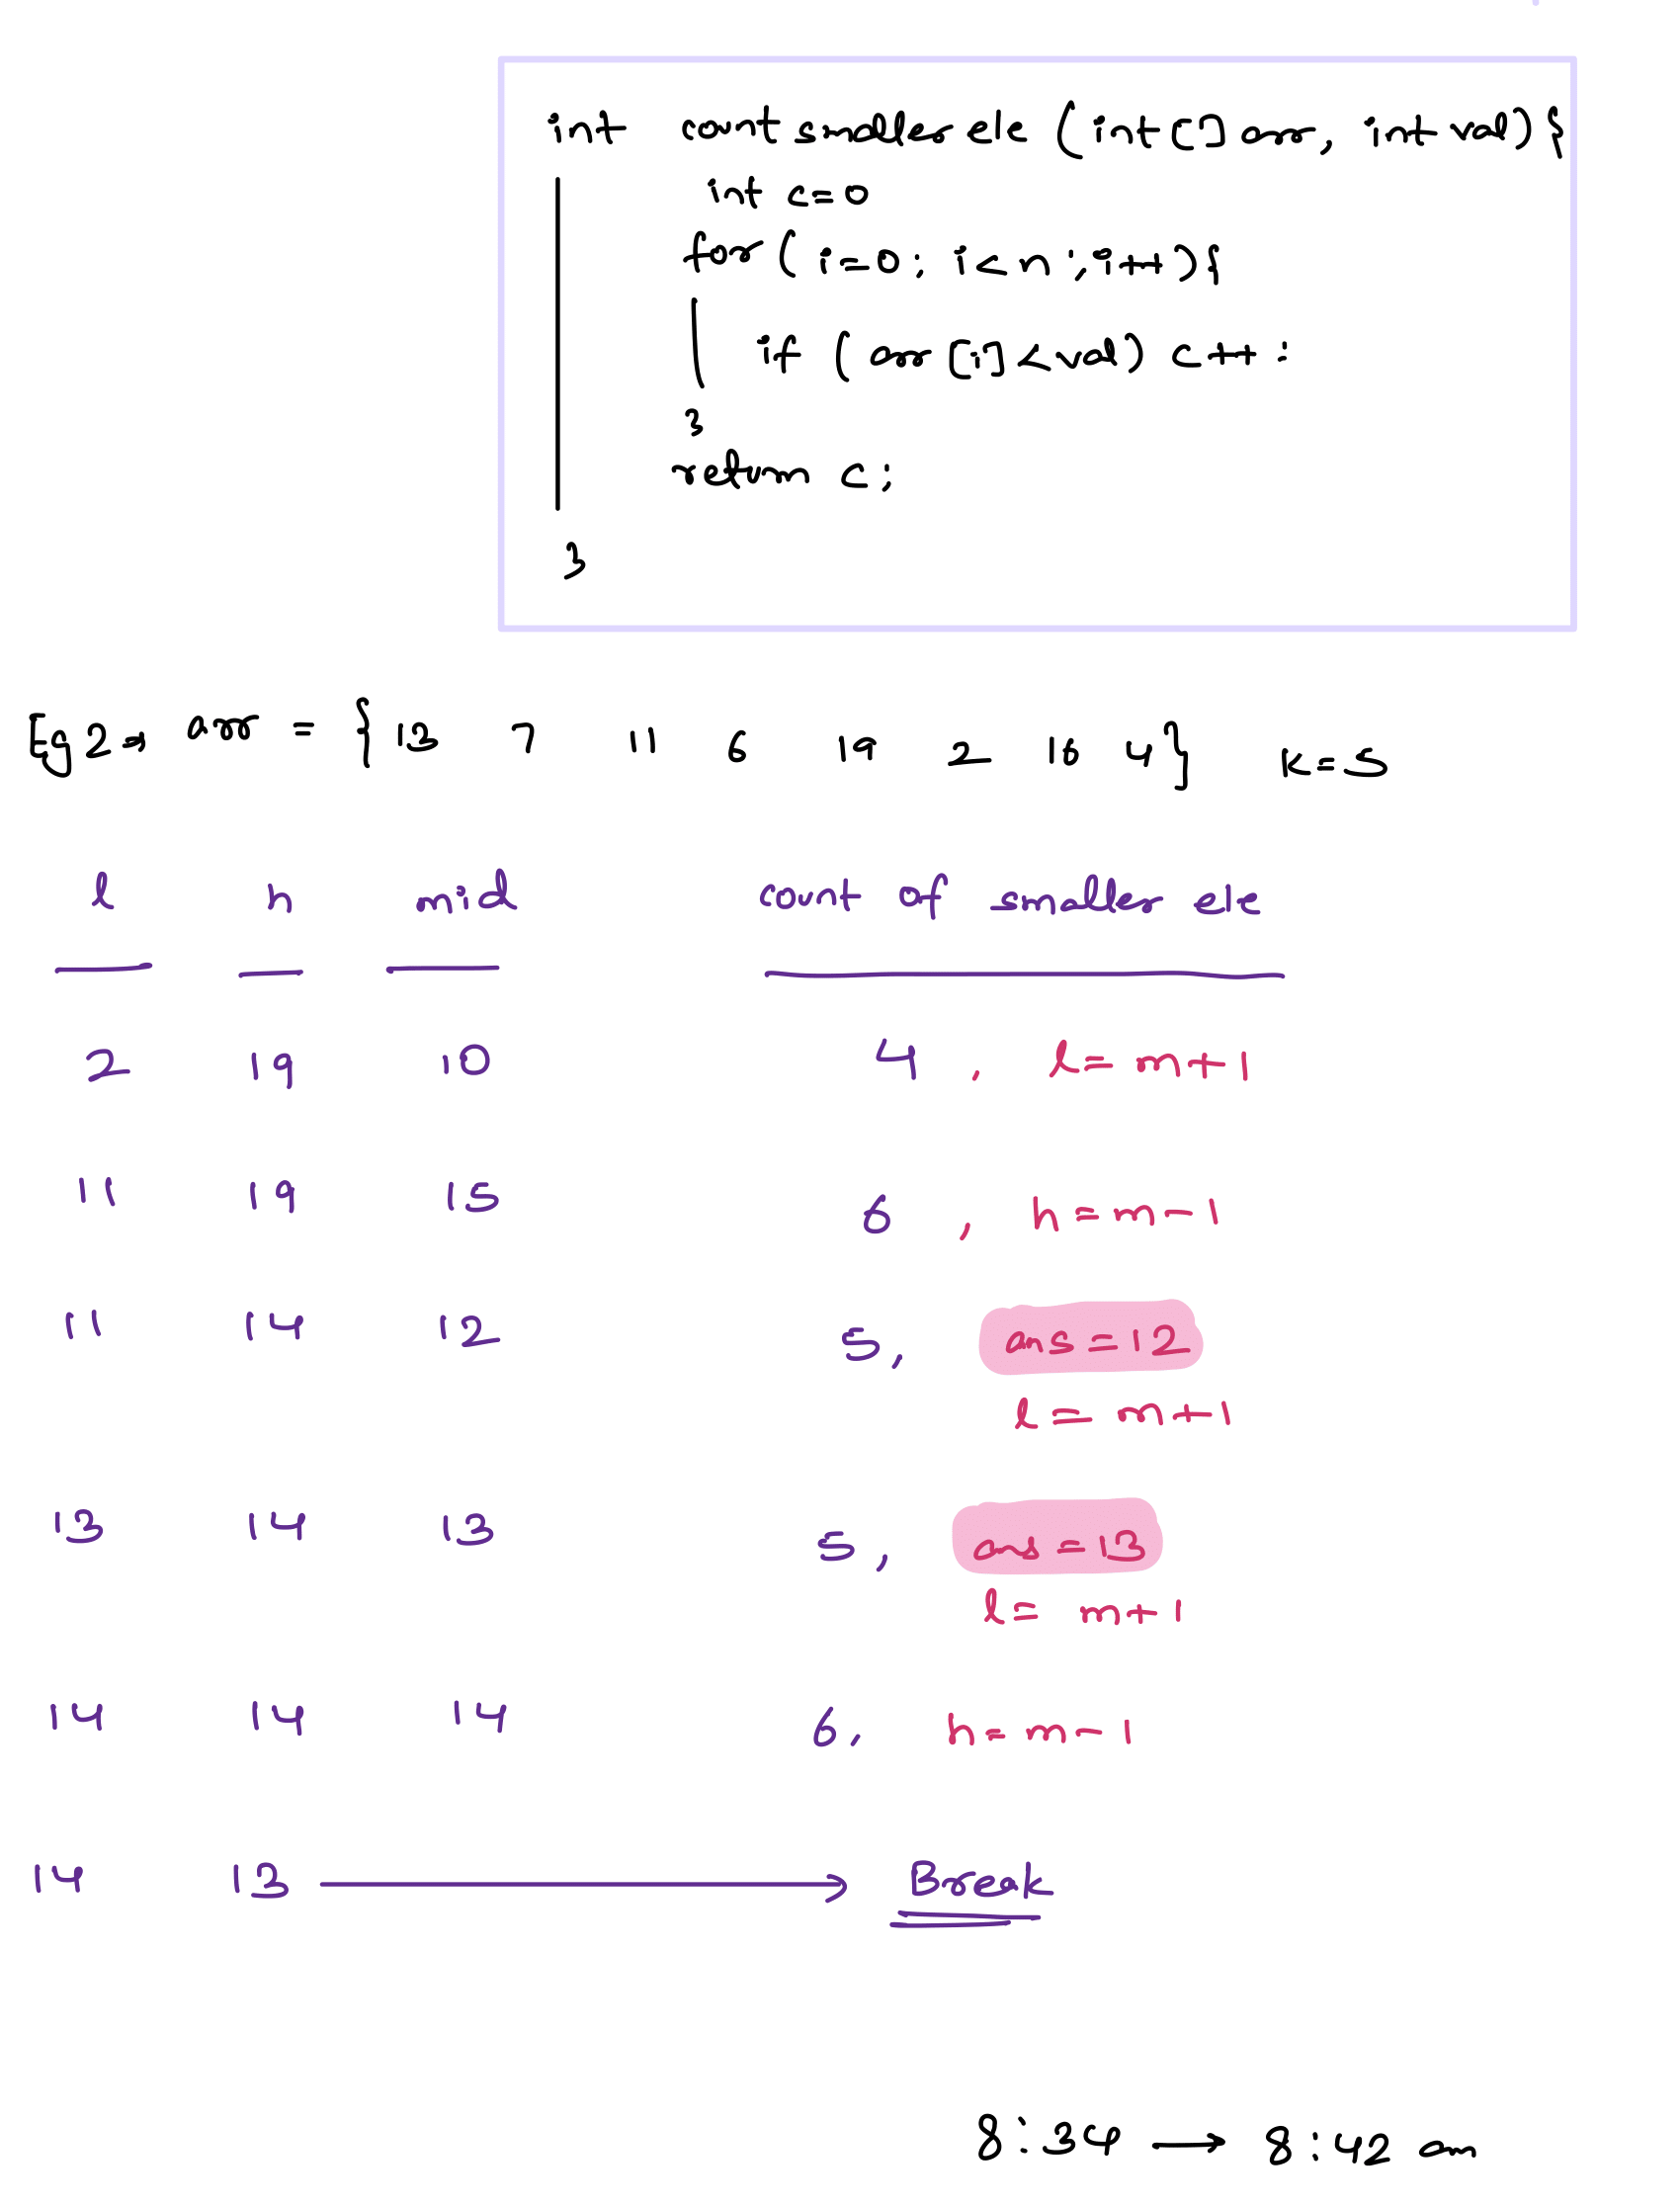 int count smaller ele (int[] arr, int val){
int c=0
for( i=0; i<n; i++){
if (arr[i]<val) c++;
}
return c;
}
Eg2⇒ arr = {13 7 11 6 19 2 16 4} K=5
l h mid count of smaller ele
2 19 10 4, l=m+1
11 19 15 6, h=m-1
11 14 12 5, ans=12
l=m+1
13 14 13 5, ans=13
l=m+1
14 14 14 6, h=m-1
14 13 → Break
8:34 → 8:42 am